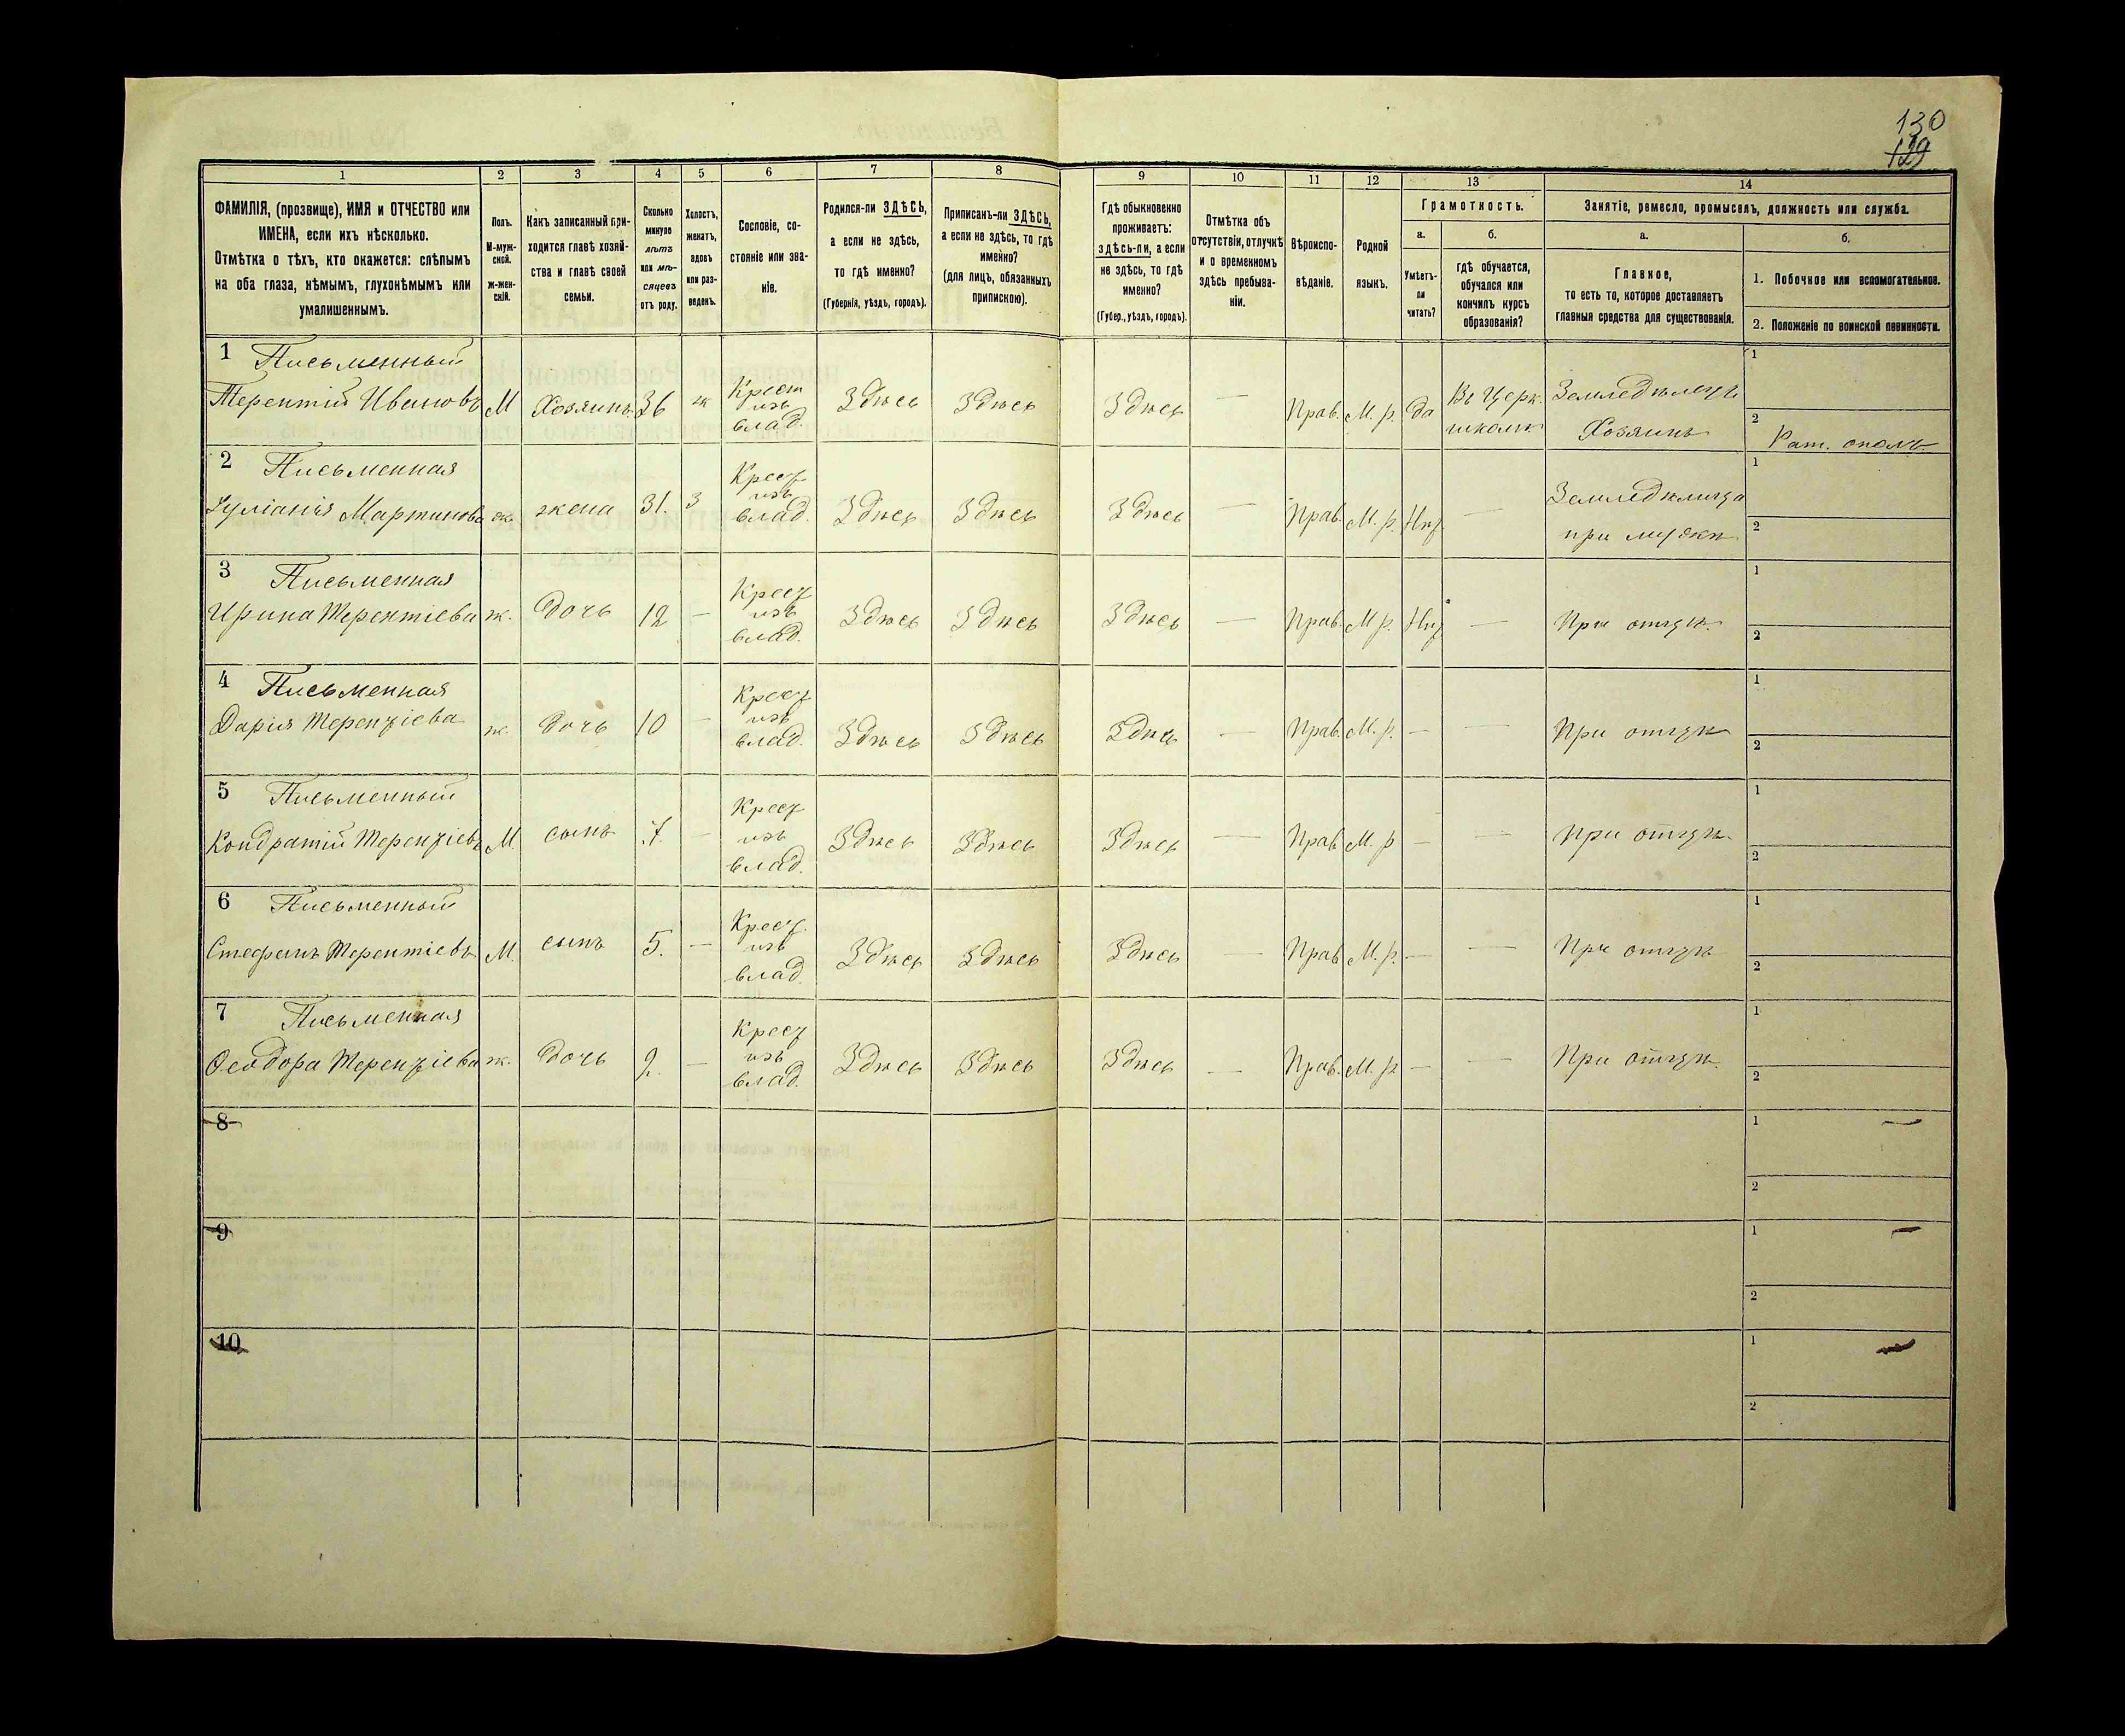 130
129
1 2 3 4 5 6 7 8 9 10 11 12 13 14
ФАМИЛІЯ, (прозвище), ИМЯ и ОТЧЕСТВО или ИМЕНА, если ихъ нѣсколько.
Отмѣтка о тѣхъ, кто окажется: слѣпымъ на оба глаза, нѣмымъ, глухонѣмымъ или умалишеннымъ.
Полъ. М-муж-ской. ж-жен-скій.
Какъ записанный при-ходится главѣ хозяй-ства и главѣ своей семьи.
Сколько минуло лѣтъ или мѣ-сяцевъ отъ роду.
Холостъ, женатъ, вдовъ или раз-веденъ.
Сословіе, со-стояніе или зва-ніе.
Родился-ли ЗДѢСЬ, а если не здѣсь, то гдѣ именно?
(Губернія, уѣздъ, городъ).
Приписанъ-ли ЗДѢСЬ, а если не здѣсь, то гдѣ именно?
(для лицъ, обязанныхъ припискою).
Гдѣ обыкновенно проживаетъ: здѣсь-ли, а если не здѣсь, то гдѣ именно?
(Губер., уѣздъ, городъ).
Отмѣтка объ отсутствіи, отлучкѣ и о временномъ здѣсь пребыва-ніи.
Вѣроиспо-вѣданіе.
Родной языкъ.
Грамотность.
а. Умѣетъ-ли читать?
б. гдѣ обучается, обучался или кончилъ курсъ образованія?
Занятіе, ремесло, промыселъ, должность или служба.
а. Главное, то есть то, которое доставляетъ главныя средства для существованія.
б.
1. Побочное или вспомогательное.
2. Положеніе по воинской повинности.
1 Письменный
Терентій Ивановъ М Хозяинъ 36 ж Крест изъ влад. Здѣсь Здѣсь Здѣсь — Прав. М. р. да Въ Церк. школѣ Земледѣлецъ Хозяинъ 1 2 Рат. ополч.
2 Письменная
Іуліанія Мартинова ж. жена 31. З Крест изъ влад. Здѣсь Здѣсь Здѣсь — Прав. М. р. Нѣт — Земледѣлица при мужѣ 1 2
3 Письменная
Ирина Терентіева ж. дочь 12 — Крест изъ влад. Здѣсь Здѣсь Здѣсь — Прав. М р. Нѣт — При отцѣ. 1 2
4 Письменная
Дарія Терентіева ж. дочь 10 — Крест изъ влад. Здѣсь Здѣсь Здѣсь — Прав. М. р. — — При отцѣ 1 2
5 Письменный
Кондратій Терентіевъ М. сынъ 7. — Крест изъ влад. Здѣсь Здѣсь Здѣсь — Прав М. р — — При отцѣ. 1 2
6 Письменный
Стефанъ Терентіевъ М. сынъ 5. — Крест. изъ влад. Здѣсь Здѣсь Здѣсь — Прав М. р. — — При отцѣ 1 2
7 Письменная
Ѳеодора Терентіева ж. дочь 2. — Крест изъ влад. Здѣсь Здѣсь Здѣсь — Прав. М. р — — При отцѣ. 1 2
8 1 — 2
9 1 — 2
10 1 — 2